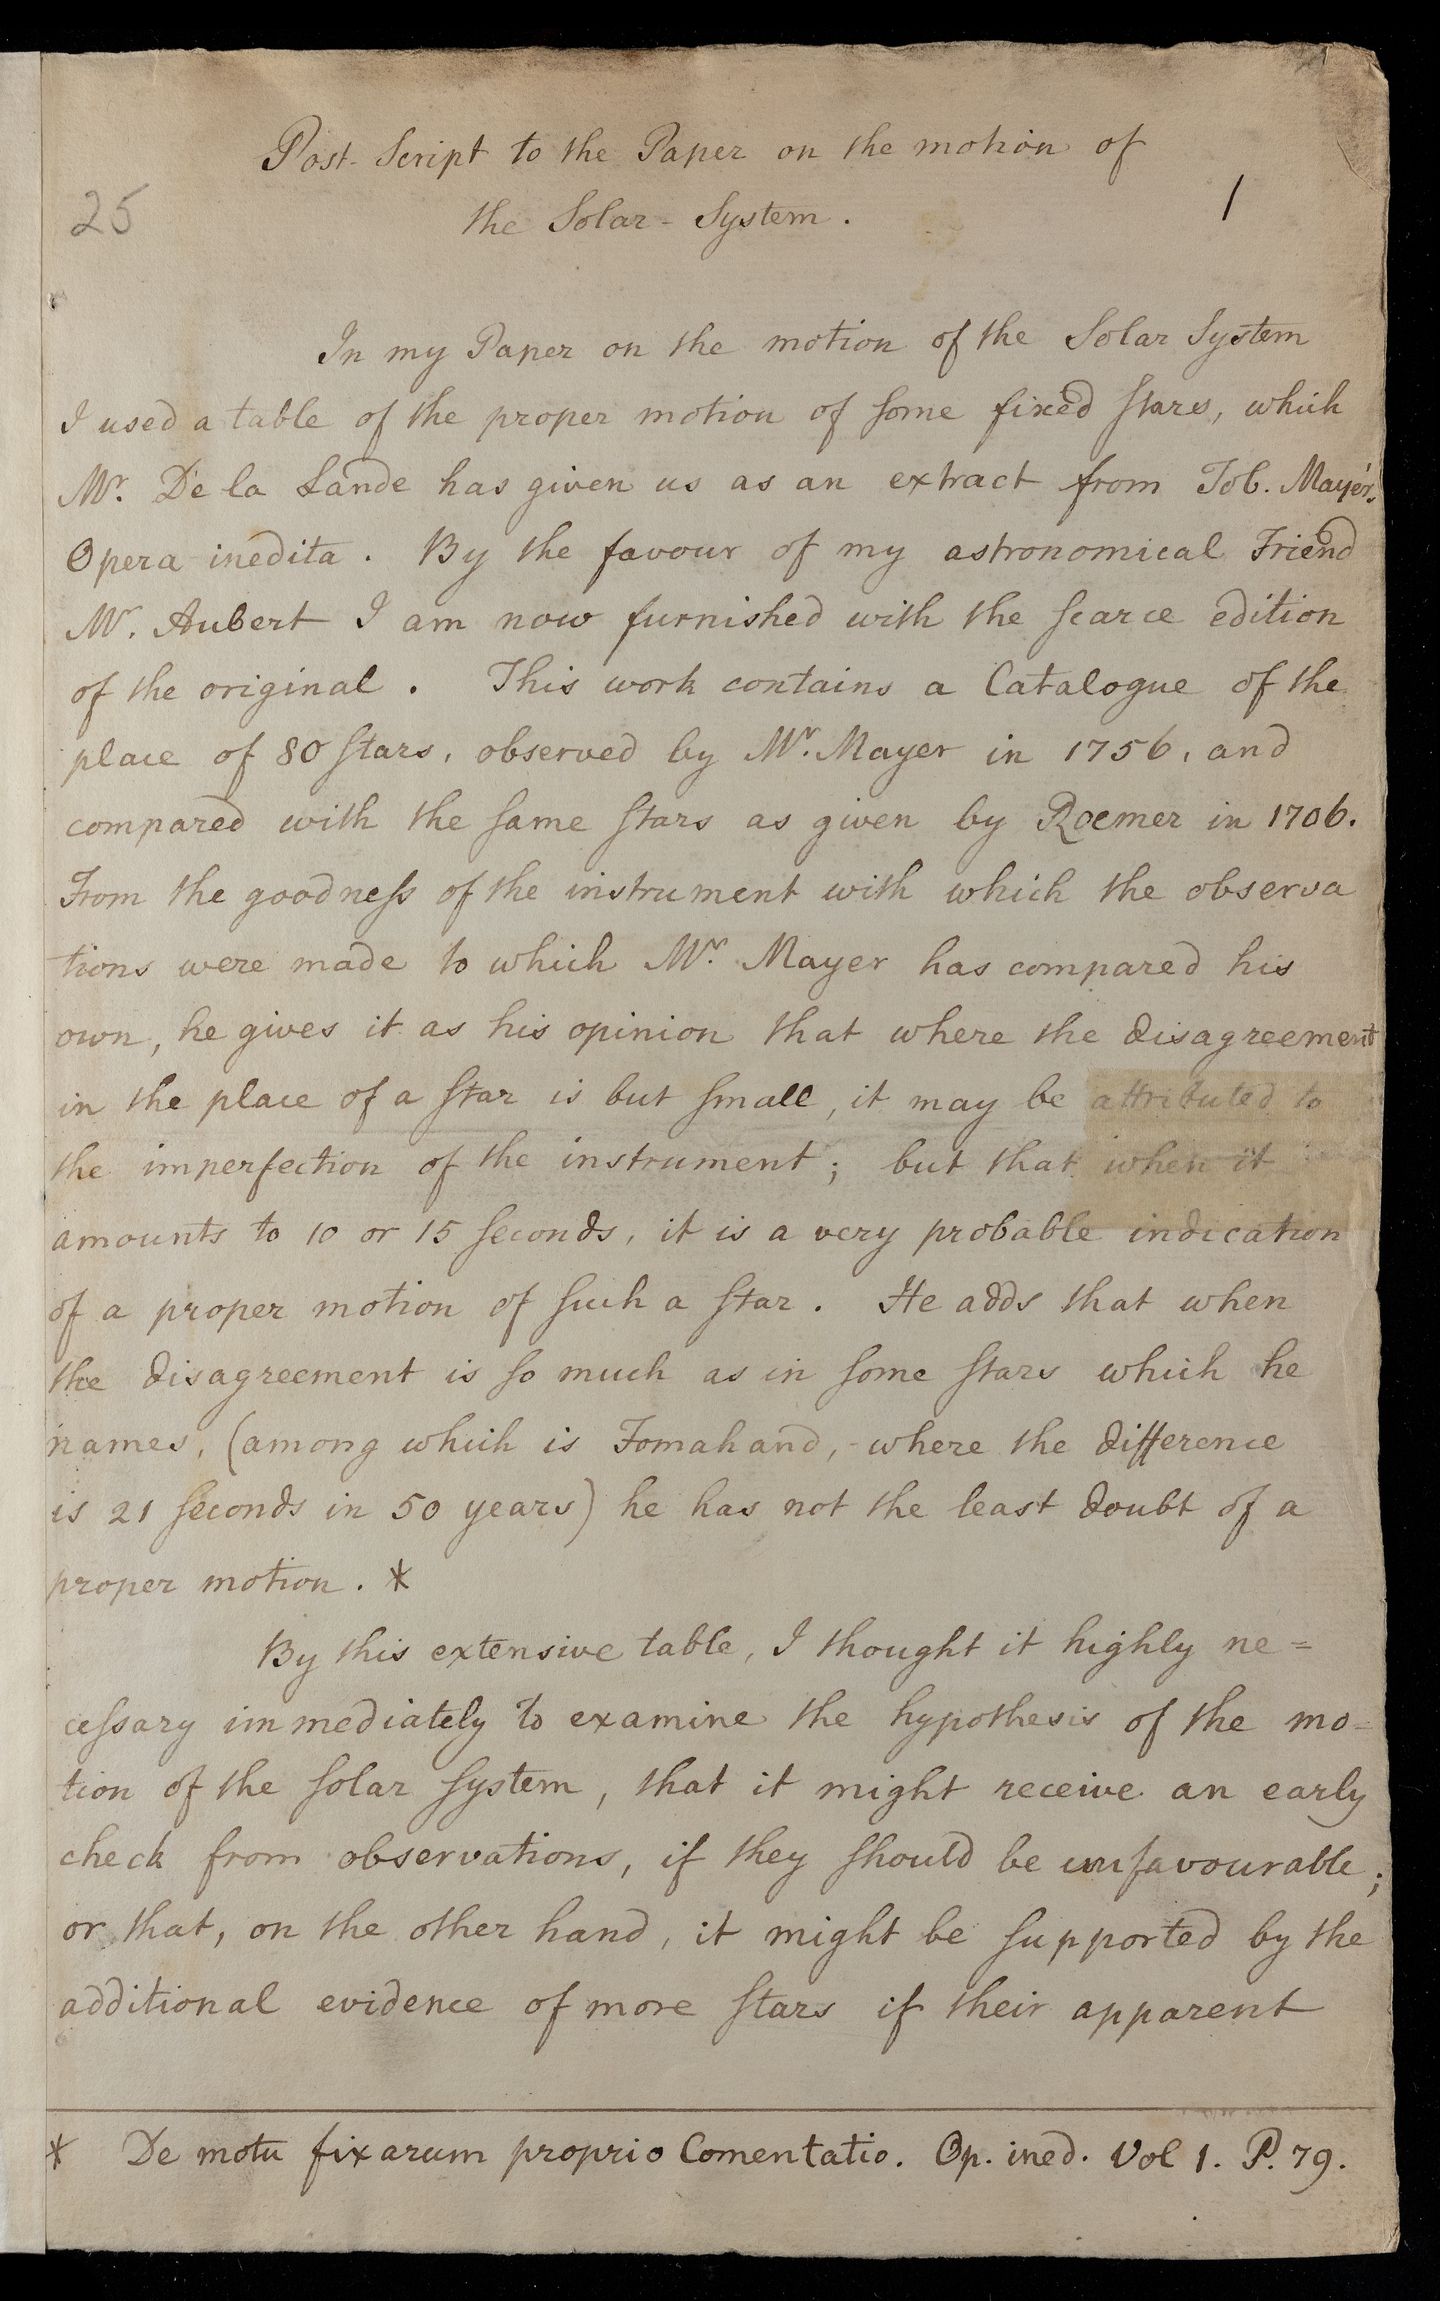 Post-Script to the Paper on the motion of
25
1
the Solar-System.
In my Paper on the motion of the Solar System
I used a table of the proper motion of some fixed stars, which
Mr. De la Lande has given us as an extract from Tob. Mayer's
Opera inedita. By the favour of my astronomical Friend
Mr. Aubert I am now furnished with the scarce edition
of the original. This work contains a Catalogue of the
place of 80 stars, observed by Mr. Mayer in 1756, and
compared with the same stars as given by Roemer in 1706.
From the goodness of the instrument with which the observa
tions were made to which Mr. Mayer has compared his
own, he gives it as his opinion that where the disagreement
in the place of a star is but small, it may be attributed to
the imperfection of the instrument; but that when it
amounts to 10 or 15 seconds, it is a very probable indication
of a proper motion of such a star. He adds that when
the disagreement is so much as in some stars which he
names, (among which is Fomahand, where the difference
is 21 seconds in 50 years) he has not the least doubt of a
proper motion. *
By this extensive table, I thought it highly ne=
cessary immediately to examine the hypothesis of the mo=
tion of the solar system, that it might receive an early
check from observations, if they should be unfavourable;
or that, on the other hand, it might be supported by the
additional evidence of more stars if their apparent
* De motu fixarum proprio Comentatio. Op. ined. Vol 1. P. 79.